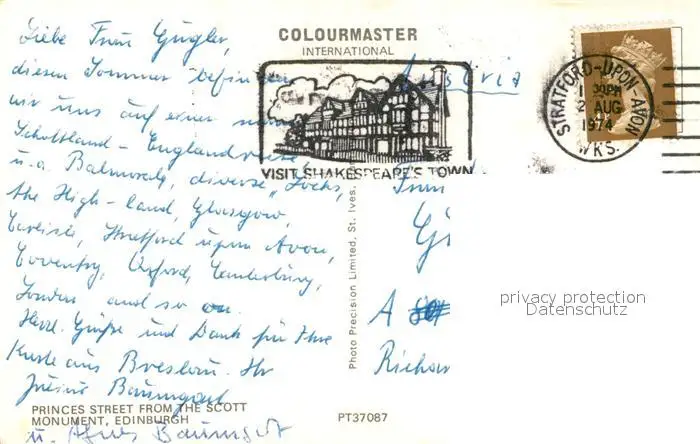 COLOURMASTER
INTERNATIONAL
Liebe Frau Gugler,
diesen Sommer befinden
wir uns auf einer
Schottland - Englandreise
u.a. Balmoral, diverse "Lochs,
the High-land, Glasgow,
Carlisle, Stratford upon Avon,
Coventry, Oxford, Canterbury,
London and so on.
Herzl. Grüße und Dank für Ihre
Karte aus Breslau. Ihr
Baumgart
u. Agnes Baumgart
PRINCES STREET FROM THE SCOTT
MONUMENT, EDINBURGH
PT37087
Photo Precision Limited, St. Ives.
VISIT SHAKESPEARE'S TOWN
STRATFORD-UPON-AVON
1 30PM
2 AUG
1974
WKS.
Austria
Frau
A
privacy protection
Datenschutz